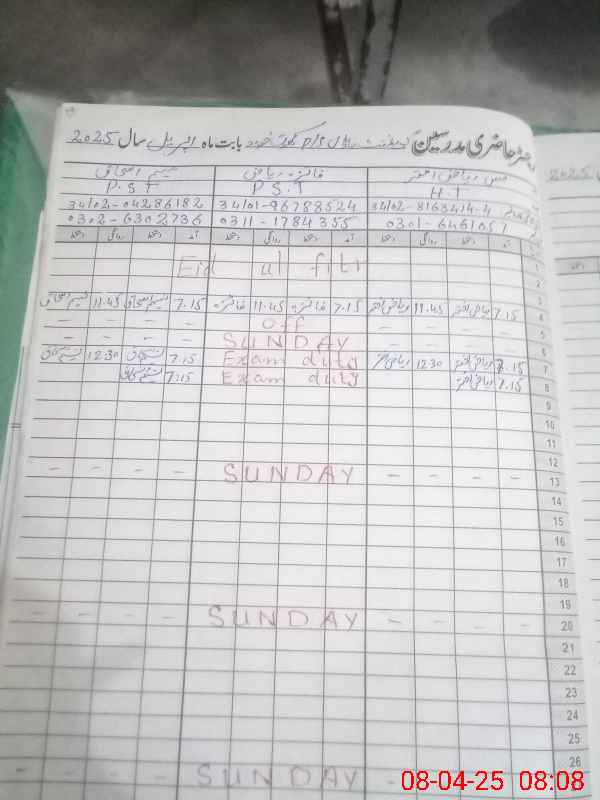 رجسٹر حاضری مدرسین گورنمنٹ p/s خورد بابت ماہ اپریل سال 2025
مس ریاض اختر فائزہ ریاض نسیم اسحاق
H.T P.S.T P.S.T
34102-8163414-4 34101-96788524 34102-04286182
0301-6461057 0311-1784355 0302-6302736
آمد دستخط روانگی دستخط آمد دستخط روانگی دستخط آمد دستخط روانگی دستخط
1
Eid ul fitr
2
3
4 7.15 ریاض اختر 11.45 ریاض اختر 7.15 فائزہ 11.45 فائزہ 7.15 نسیم اسحاق 11.45 نسیم اسحاق
5 - - - - off - - - -
6 - - - - SUNDAY - - - -
7 7.15 ریاض اختر 12.30 ریاض اختر Exam duty 7.15 نسیم اسحاق 12.30 نسیم اسحاق
8 7.15 ریاض اختر Exam duty 7.15 نسیم اسحاق
9
10
11
12
13 - - - - SUNDAY - - - -
14
15
16
17
18
19
20 - - - - SUNDAY - - - -
21
22
23
24
25
26
SUNDAY
2025
08-04-25 08:08